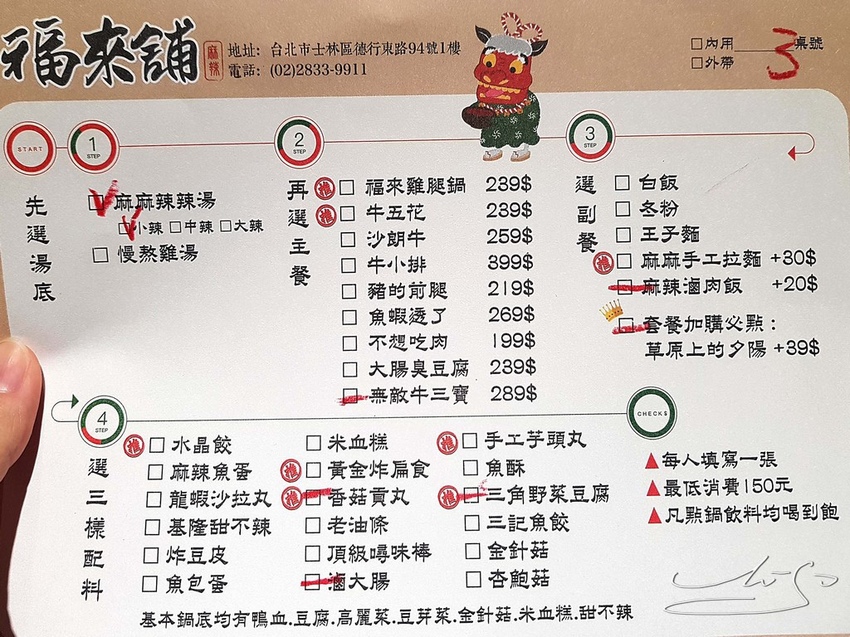 福來舖 麻辣
地址: 台北市士林區德行東路94號1樓
電話: (02)2833-9911
□內用 3 桌號
□外帶
START
1 STEP
先選湯底
□麻麻辣辣湯
□小辣 □中辣 □大辣
□ 慢熬雞湯
2 STEP
再選主餐
推 □ 福來雞腿鍋 239$
推 □ 牛五花 239$
□ 沙朗牛 259$
□ 牛小排 399$
□ 豬的前腿 219$
□ 魚蝦透了 269$
□ 不想吃肉 199$
□ 大腸臭豆腐 239$
□ 無敵牛三寶 289$
3 STEP
選副餐
□ 白飯
□ 冬粉
□ 王子麵
推 □ 麻麻手工拉麵 +30$
□ 麻辣滷肉飯 +20$
□ 套餐加購必點:
草原上的夕陽 +39$
4 STEP
選三樣配料
推 □ 水晶餃
□ 麻辣魚蛋
□ 龍蝦沙拉丸
□ 基隆甜不辣
□ 炸豆皮
□ 魚包蛋
□ 米血糕
推 □ 黃金炸扁食
推 □ 香菇貢丸
□ 老油條
□ 頂級噚味棒
□ 滷大腸
推 □ 手工芋頭丸
□ 魚酥
推 □ 三角野菜豆腐
□ 三記魚餃
□ 金針菇
□ 杏鮑菇
CHECK$
▲每人填寫一張
▲最低消費150元
▲凡點鍋飲料均喝到飽
基本鍋底均有鴨血.豆腐.高麗菜.豆芽菜.金針菇.米血糕.甜不辣